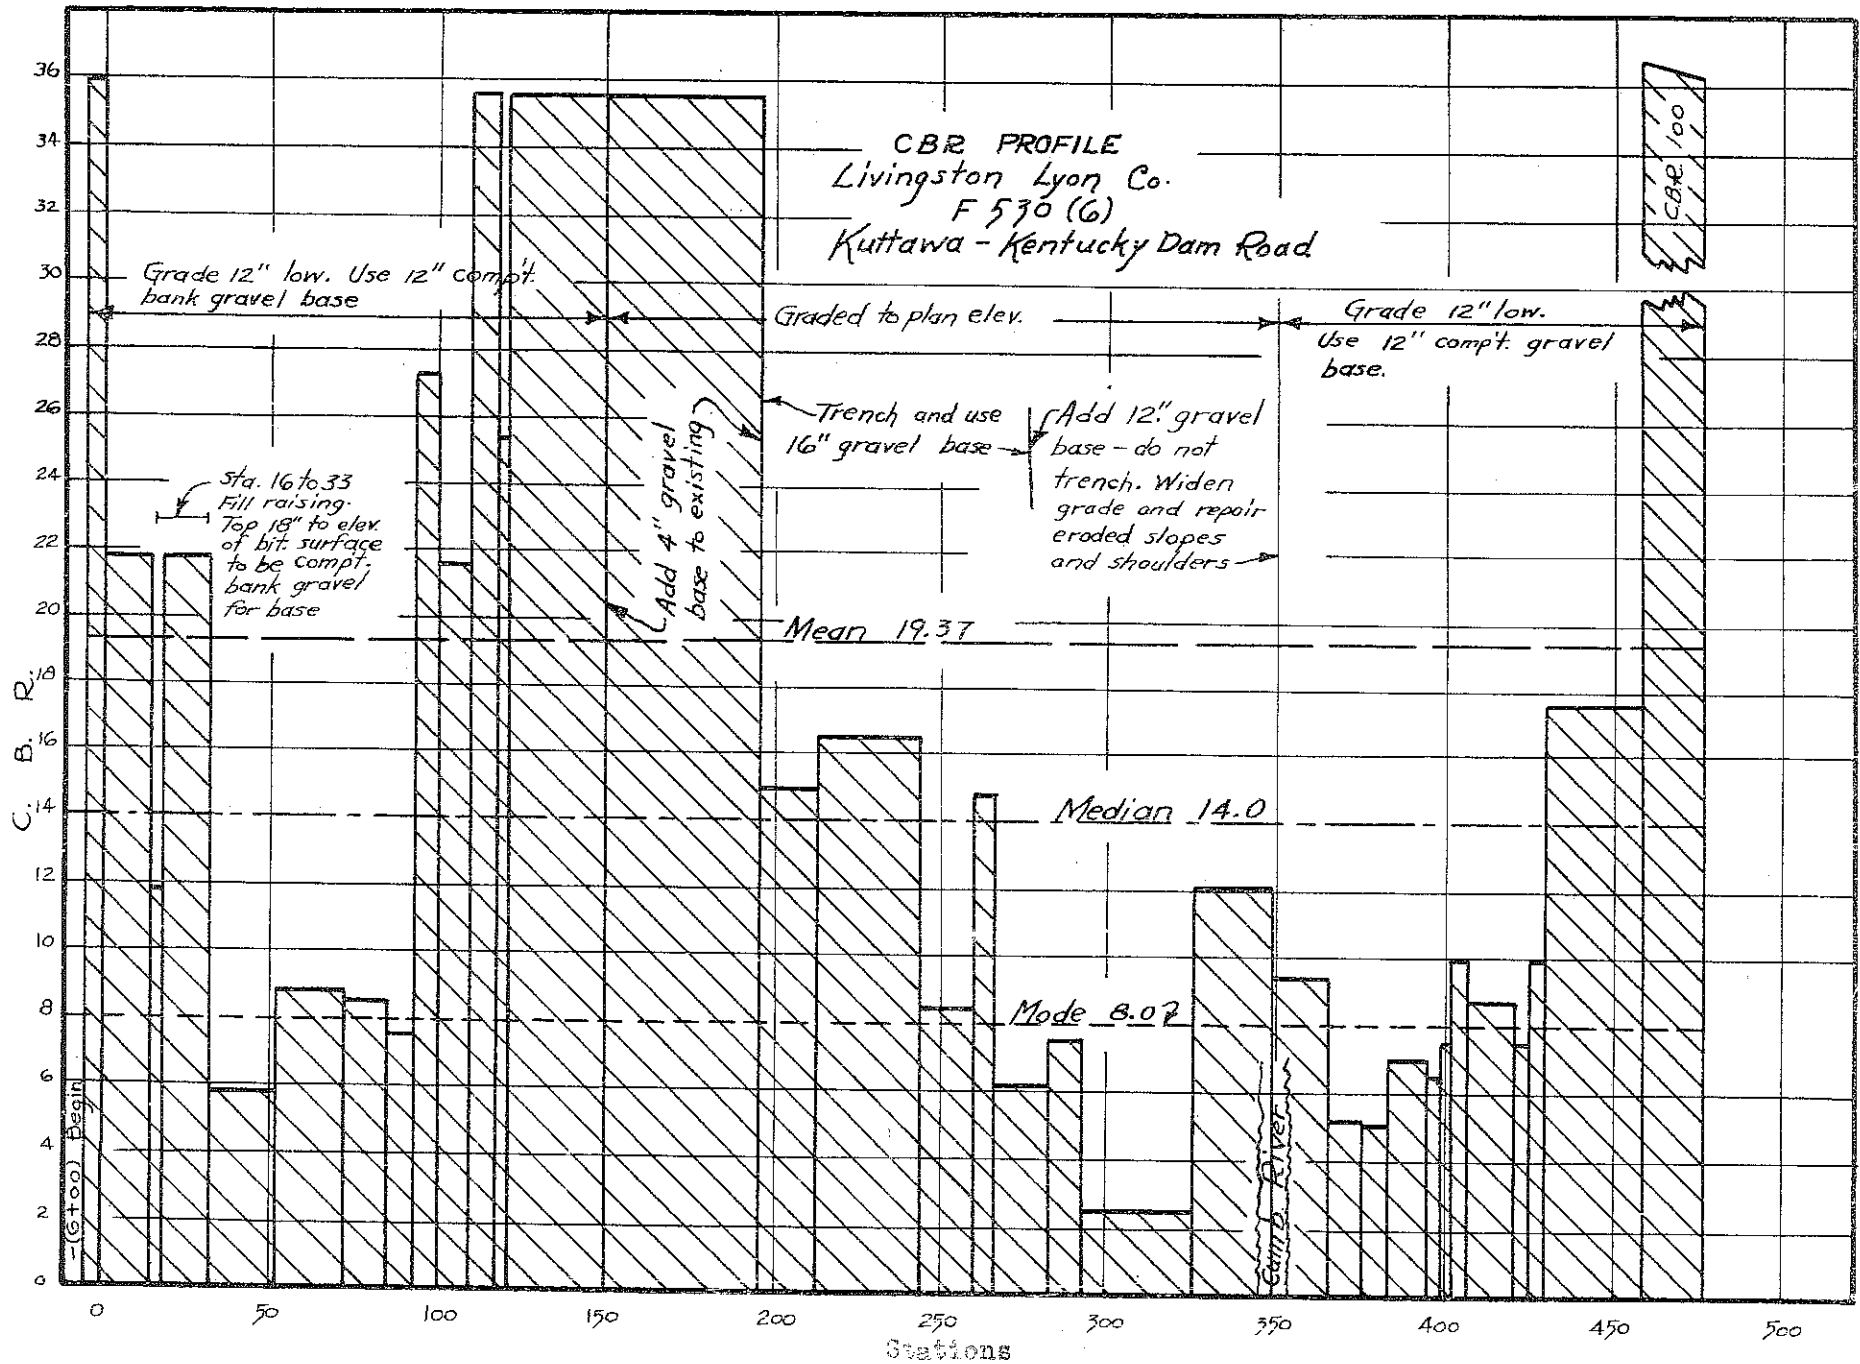 CBR PROFILE
Livingston Lyon Co.
F 530 (6)
Kuttawa - Kentucky Dam Road
Grade 12" low. Use 12" comp't.
bank gravel base
Graded to plan elev.
Grade 12" low.
Use 12" comp't. gravel
base.
Sta. 16 to 33
Fill raising.
Top 18" to elev.
of bit. surface
to be compt.
bank gravel
for base
Add 4" gravel
base to existing
Trench and use
16" gravel base
Add 12" gravel
base - do not
trench. Widen
grade and repair
eroded slopes
and shoulders
C.B.R. 100
Mean 19.37
Median 14.0
Mode 8.07
-(6+00) Begin
Cumb. River
C. B. R.
36
34
32
30
28
26
24
22
20
18
16
14
12
10
8
6
4
2
0
0 50 100 150 200 250 300 350 400 450 500
Stations